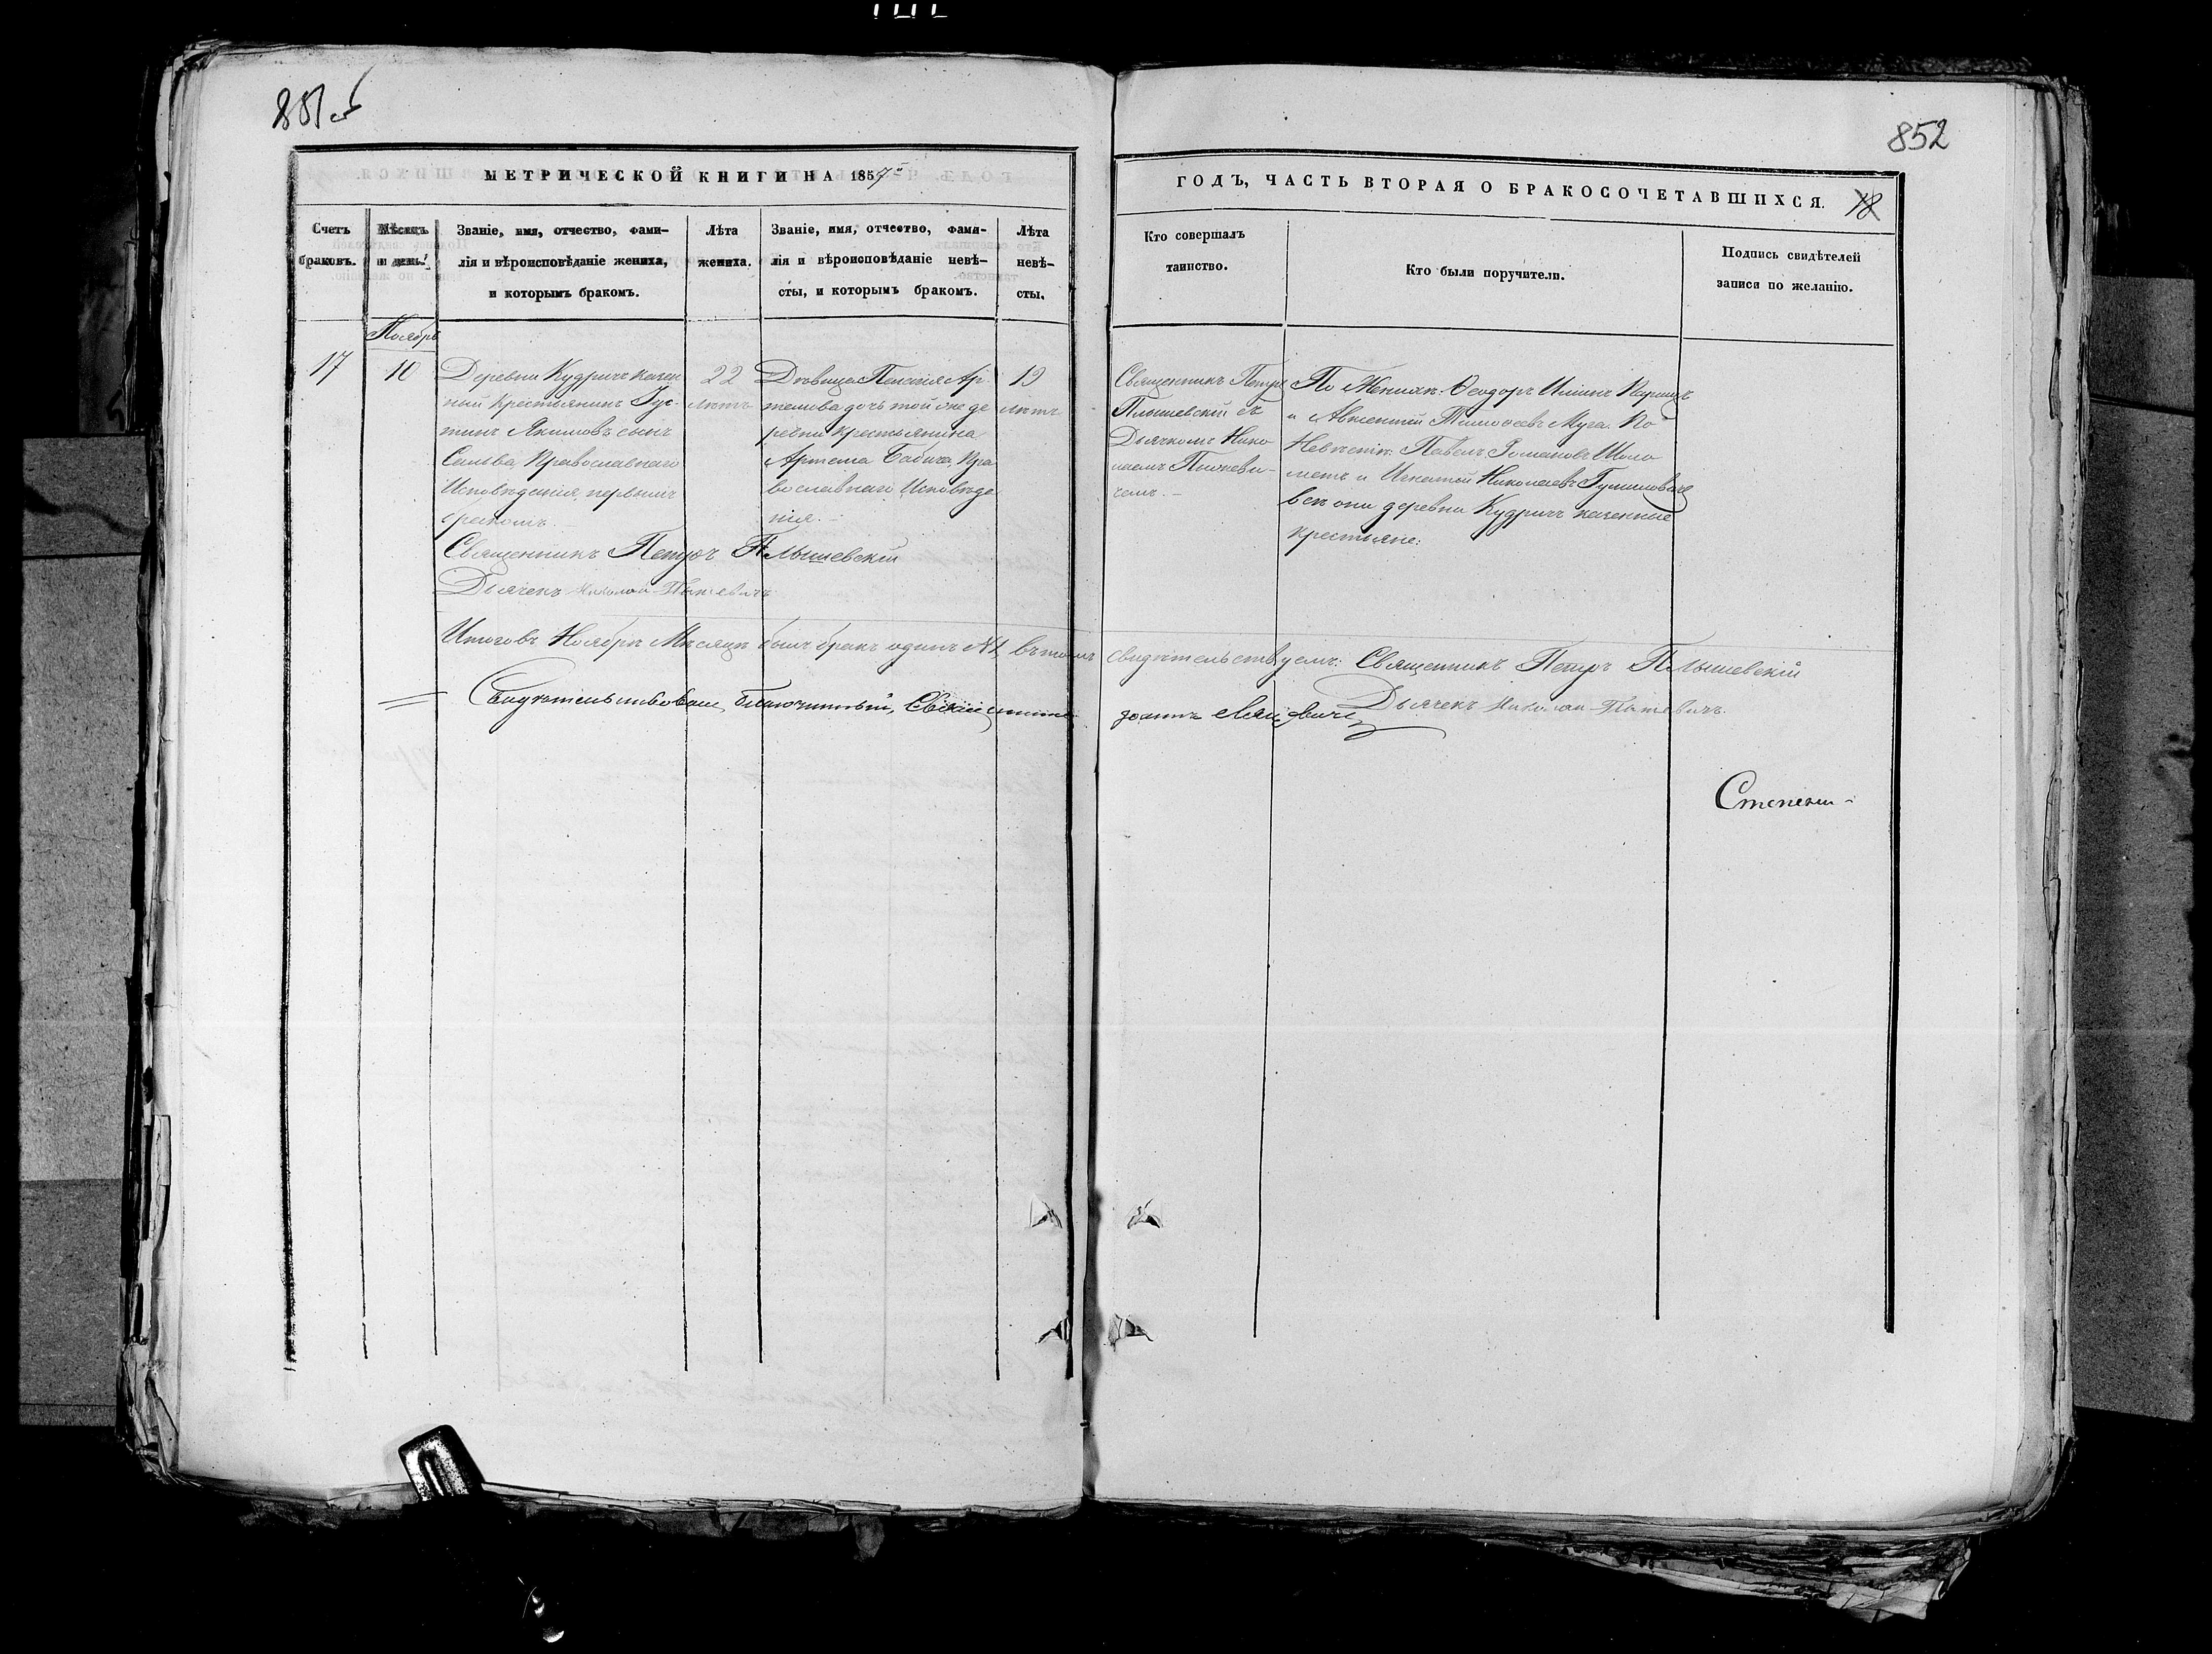 851 об
852
МЕТРИЧЕСКОЙ КНИГИ НА 1857й
ГОДЪ, ЧАСТЬ ВТОРАЯ О БРАКОСОЧЕТАВШИХСЯ. 18
Счетъ
браковъ.
Мѣсяцъ
и день.
Званіе, имя, отчество, фами-
лія и вѣроисповѣданіе жениха,
и которымъ бракомъ.
Лѣта
жениха.
Званіе, имя, отчество, фами-
лія и вѣроисповѣданіе невѣ-
сты, и которымъ бракомъ.
Лѣта
невѣ-
сты.
Кто совершалъ
таинство.
Кто были поручители.
Подпись свидѣтелей
записи по желанію.
Ноябрь
17
10
Деревни Кудричъ казен
ный Крестьянинъ Іус-
тинъ Якимовъ сынъ
Православнаго
Исповѣданія, первымъ
бракомъ. –
22
лѣтъ
Дѣвица Пелагія Ар
темова дочь той же де
ревни Крестьянина
Артема Бабича, Пра
вославнаго Исповѣда
нія. –
19
лѣтъ
Священникъ Петръ
Плышевскій съ
Дьячкомъ Нико
лаемъ
чемъ. –
По Женихѣ: Ѳеодоръ Ильинъ
и Авксентій Тимоѳеевъ Муха. По
Невѣстѣ: Павелъ Романовъ Шоло
метъ и Игнатій Николаевъ
всѣ они деревни Кудричъ казенные
крестьяне:
Священникъ Петръ Плышевскій
Дьячекъ Николай
Итого въ Ноябрѣ Мѣсяцѣ былъ бракъ одинъ №1, въ томъ свидѣтельствуемъ: Священникъ Петръ Плышевскій
Дьячекъ Николай
Свидѣтельствовалъ благочинный, Священникъ Іоаннъ